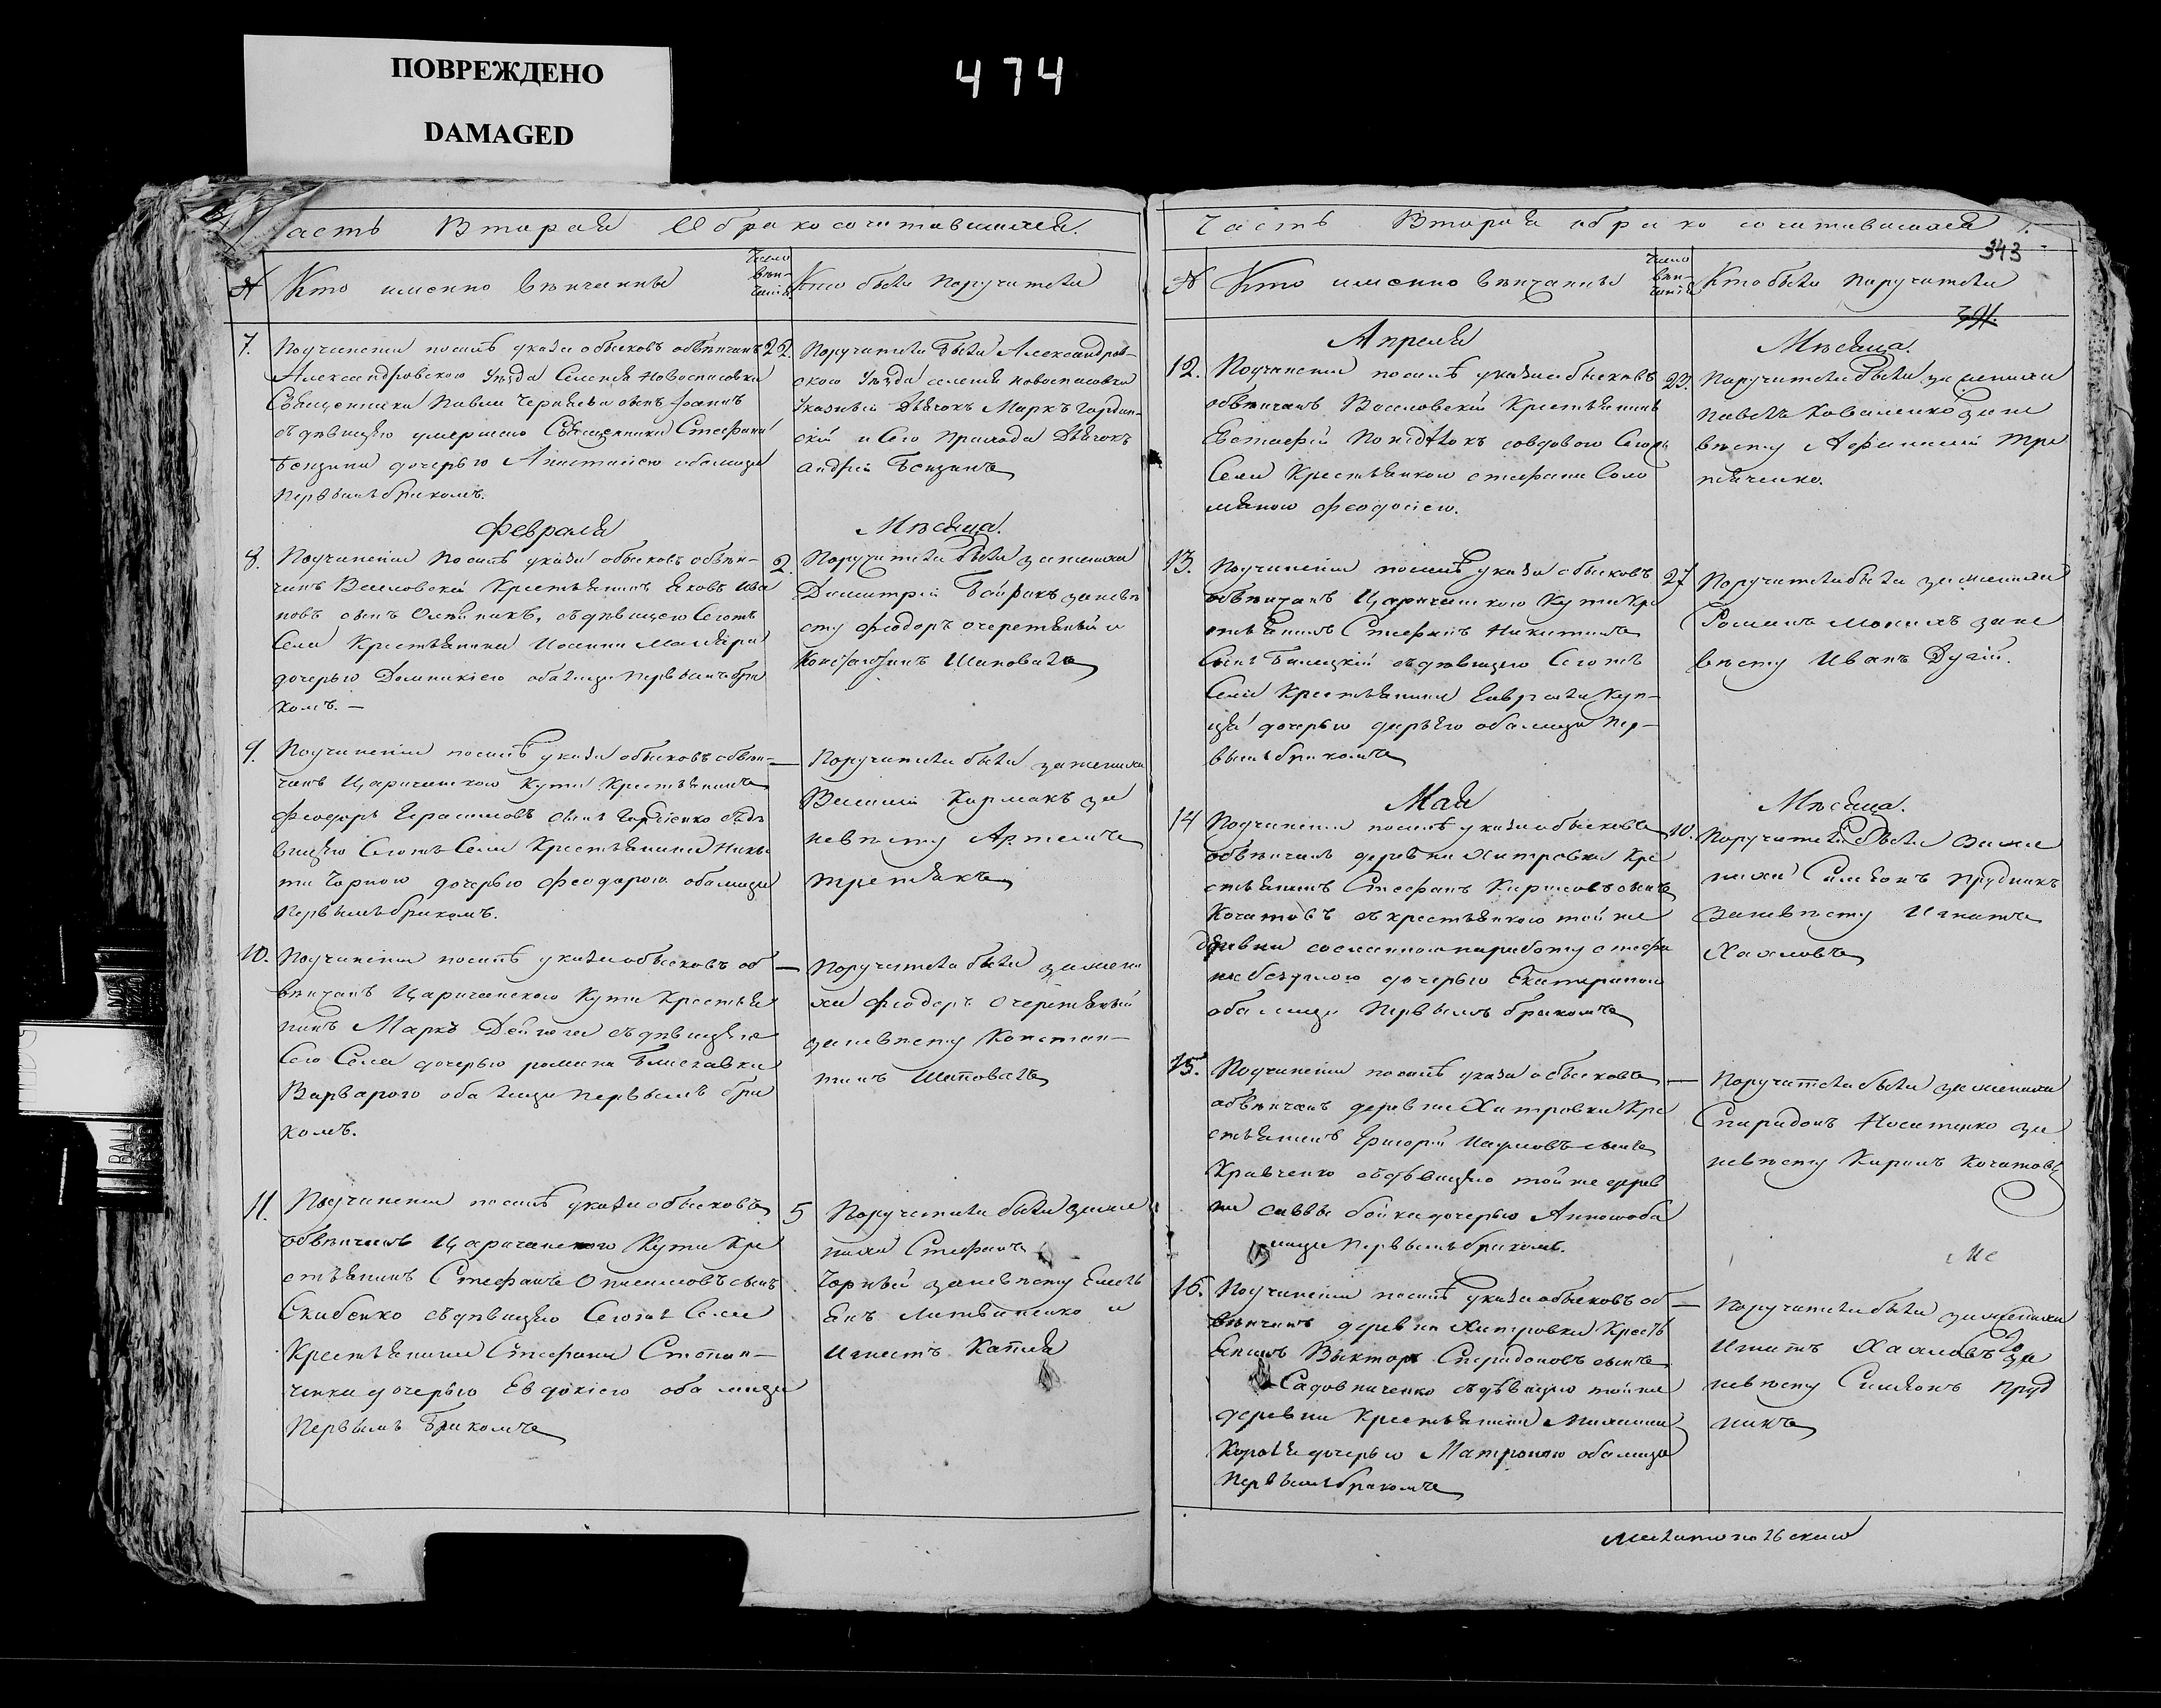 ПОВРЕЖДЕНО
DAMAGED
474
асть Вторая О бракосочитавшихся.
№ Кто именно вѣнчанны
Число вѣн-чанія
Кто были поручители
7. Поучиненіи посилѣ указа обысковъ обвѣнчанъ
Александровского уѣзда Селенія Новоспасовки
Священника Павла Черняева сынъ Іоаннъ
съ дѣвицею умершего Священника Стефана
дочерью Анастасіею оба лица
первымъ бракомъ.
22. Поручители были Александров-
ского уѣзда селенія новоспасовки
указный Дьячокъ Маркъ
и Сего прихода Дьячокъ
Андрей
Февраля
Мѣсяца.
8. Поучиненіи посилѣ указа обысковъ обвѣн-
чанъ Веселовскій Крестьянинъ Яковъ Ива
новъ сынъ Олейникъ, съ дѣвицею Сегожъ
Села Крестьянина Іосифа Маляра
дочерью Домникіею оба лица первымъ бра
комъ. —
2. Поручители были за жениха
Димитрій Байракъ за невѣ
сту Феодоръ Очеретяный и
Константинъ Шаповалъ
9. Поучиненіи посилѣ указа обысковъ обвѣн-
чанъ Царичанского Кута Крестьянинъ
Феодоръ Герасимовъ сынъ Гордіенко съ дѣ
вицею Сегожъ Села Крестьянина Ники
ты Чорного дочерью Феодорою оба лица
первымъ бракомъ.
— Поручители были за жениха
Василій Кормакъ за
невѣсту Артемъ
Третякъ
10. Поучиненіи посилѣ указа обысковъ об
вѣнчанъ Царичанского Кута Крестья
нинъ Маркъ Дейнега съ дѣвицею
Сего Села дочерью романа Блискавки
Варварою оба лица первымъ бра
комъ.
— Поручители были за жени
ха Феодоръ Очеретяный
за невѣсту Констан-
тинъ Шаповалъ
11. Поучиненіи посилѣ указа обысковъ
обвѣнчанъ Царичанского Кута Кре
стьянинъ Стефанъ сынъ
Скибенко съ дѣвицею Сегожъ Села
Крестьянина Стефана Степан-
ченка дочерью Евдокіею оба лица
Первымъ Бракомъ
5 Поручители были за же
ниха Стефанъ
Чорный за невѣсту Емель
янъ Литвиненко и
Игнатъ Капля
Часть Вторая о бракосочитавшихся
343
№ Кто именно вѣнчанны
Число вѣн-чанія
Кто были поручители
391.
Апреля
Мѣсяца.
12. Поучиненіи посилѣ указа обысковъ
обвѣнчанъ Веселовскій Крестьянинъ
Евстафій совдовою Сегожъ
Села Крестьянкою стефана Соло
мяною Феодосіею.
23. Поручители были за жениха
Павелъ Коваленко за не
вѣсту Афанасій Тре
тяченко.
13. Поучиненіи посилѣ указа обысковъ
обвѣнчанъ Царичанского Кута Кре
стьянинъ Стефанъ Никитинъ
Сынъ Билецкій съ дѣвицею Сегожъ
Села Крестьянина Гавріила Куп-
ца дочерью Дарьею оба лица пер-
вымъ бракомъ
27 Поручители были за жениха
Романъ за не
вѣсту Иванъ Дугій.
Мая
Мѣсяца.
14 Поучиненіи посилѣ указа обысковъ
обвѣнчанъ деревни Хитровки Кре
стьянинъ Стефанъ Кириловъ сынъ
Кочатовъ съ крестьянкою той же
деревни сосланного на работу стефа
на безуглого дочерью Екатериною
оба лица первымъ бракомъ
10. Поручители были за же
ниха Симеонъ Прудникъ
за невѣсту Игнатъ
Хахловъ
15. Поучиненіи посилѣ указа обысковъ
обвѣнчанъ деревни Хитровки Кре
стьянинъ Григорій Наумовъ сынъ
Кравченко съ дѣвицею той же дерев
ни саввы бойка дочерью Анною оба
лица первымъ бракомъ.
— Поручители были за жениха
Спиридонъ Носитенко за
невѣсту Кирилъ Кочатовъ
Ме
16. Поучиненіи посилѣ указа обысковъ об
вѣнчанъ деревни Хитровки Кресть
янинъ Викторъ Спиридоновъ сынъ
Садовниченко съ дѣвицею той же
деревни Крестьянина Михаила
Короля дочерью Матроною оба лица
первымъ бракомъ
— Поручители были за жениха
Игнатъ Хахловъ за
невѣсту Симеонъ Пруд
никъ
Мелитопольского